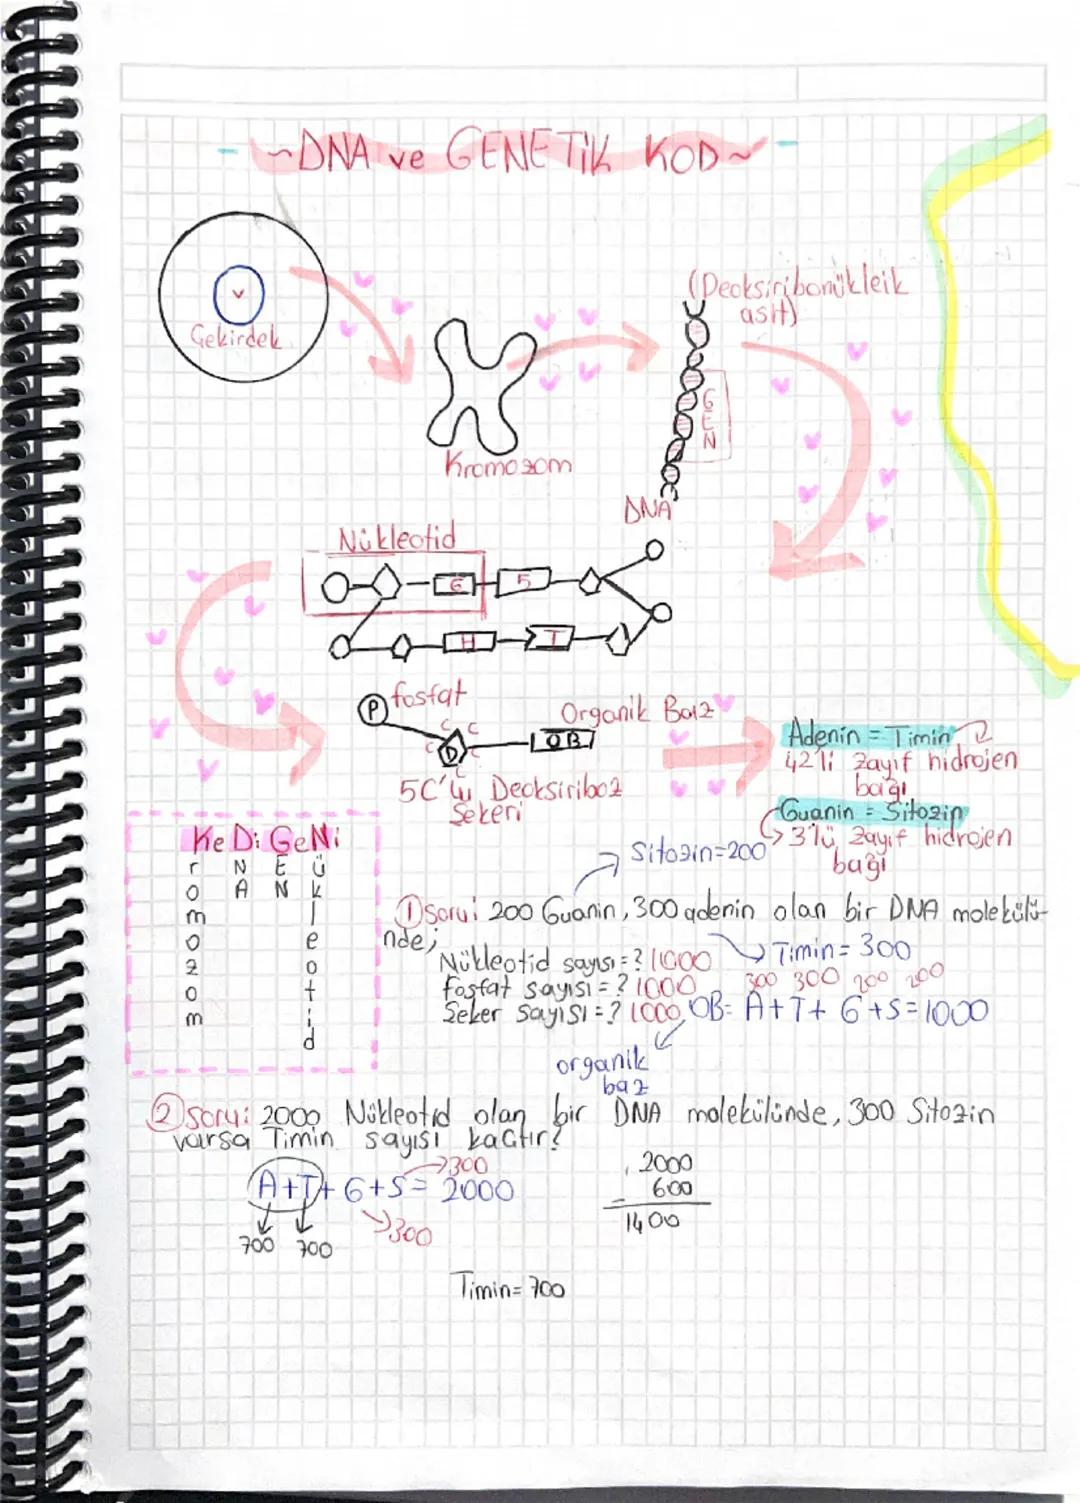 ~DNA ve GENETİK KOD~
Çekirdek
Kromozom
(Deoksiribonükleik
asit)
GEN
DNA
Nükleotid
G S
T
P fosfat
Organik Baz
C C
C C
D
OB
5C'lu Deoksiriboz
Şekeri
Adenin = Timin
2'li zayıf hidrojen
bağı
Guanin = Sitozin
3'lü zayıf hidrojen
bağı
KeDi GeNi
Kromozom
DNA
GEN
Nükleotid
Sitozin=200
1 Soru: 200 Guanin, 300 adenin olan bir DNA molekülü-
nde;
Timin= 300
Nükleotid sayısı=? 1000
300 300 200 200
fosfat sayısı=? 1000
Şeker sayısı=? 1000 OB= A+T+G+S=1000
organik
baz
2 Soru: 2000 Nükleotid olan bir DNA molekülünde, 300 Sitozin
varsa Timin sayısı kaçtır?
300
A+T+G+S= 2000
300
700 700
2000
- 600
1400
Timin= 700